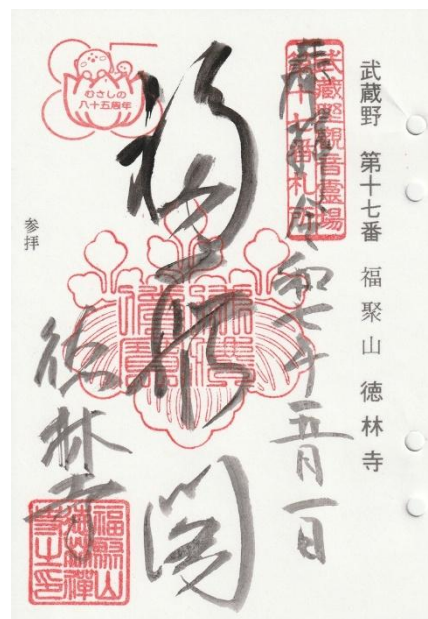 武蔵野　第十七番　福聚山　徳林寺
武蔵野觀音霊場
第十七番札所
奉拝　令和七年五月一日
福聚閣
むさしの
八十五周年
参拝
徳林寺
福聚山
徳林禅
寺之印